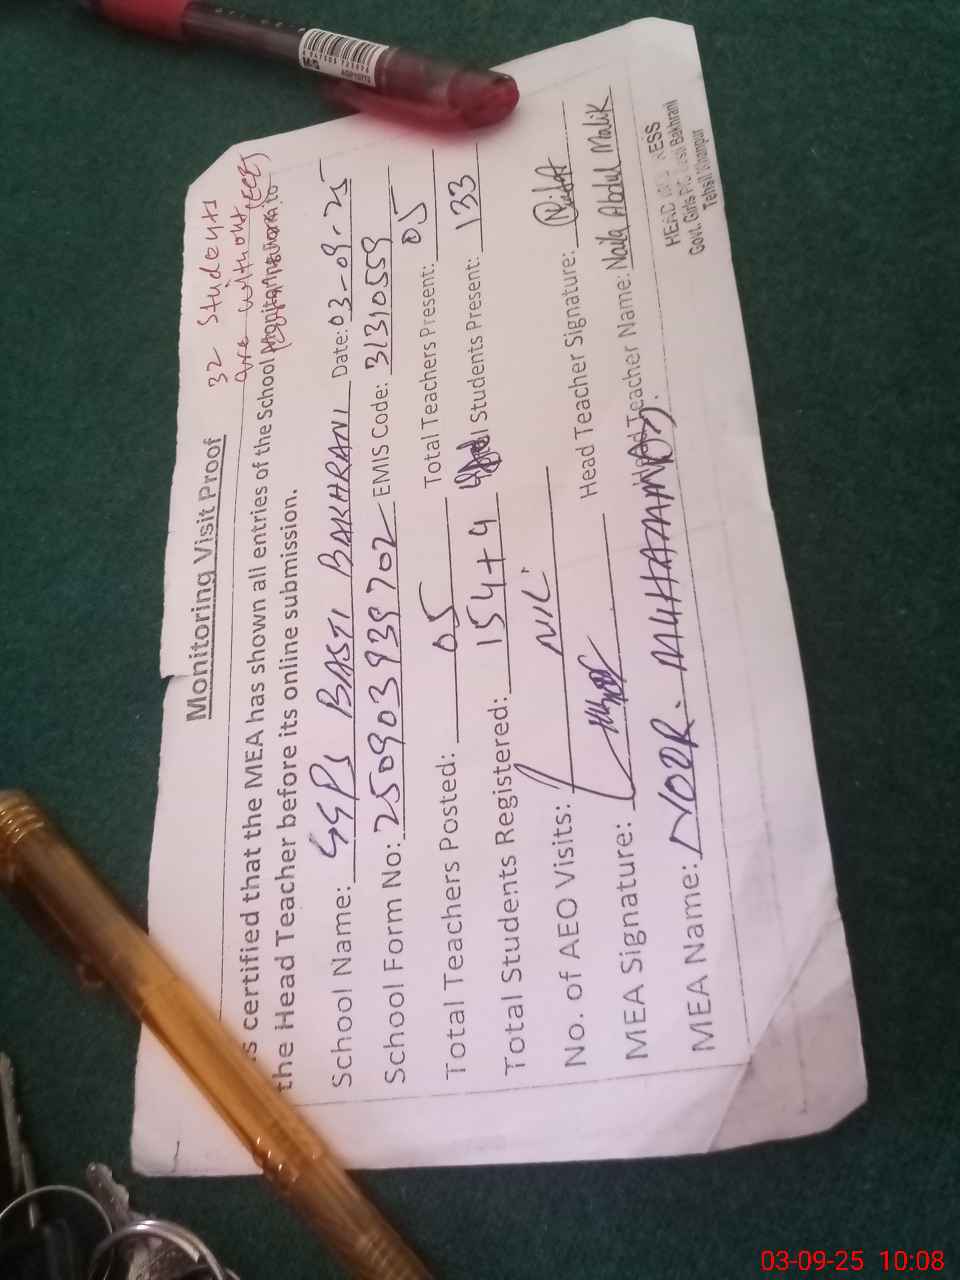 32 Students
are without
Monitoring Visit Proof
is certified that the MEA has shown all entries of the School Monitoring Form to
the Head Teacher before its online submission.
School Name: GGPS BASTI BAKHRANI Date: 03-09-25
School Form No: 250903939702 EMIS Code: 31310559
Total Teachers Posted: 05 Total Teachers Present: 05
Total Students Registered: 154+4 Students Present: 133
No. of AEO Visits: NIL
MEA Signature: Head Teacher Signature:
MEA Name: NOOR MUHAMMAD Head Teacher Name: Naila Abdul Malik
HEAD
Govt. Girls Bakhrani
Tehsil Khanpur
03-09-25 10:08